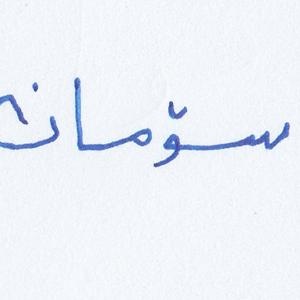 سۆمانە